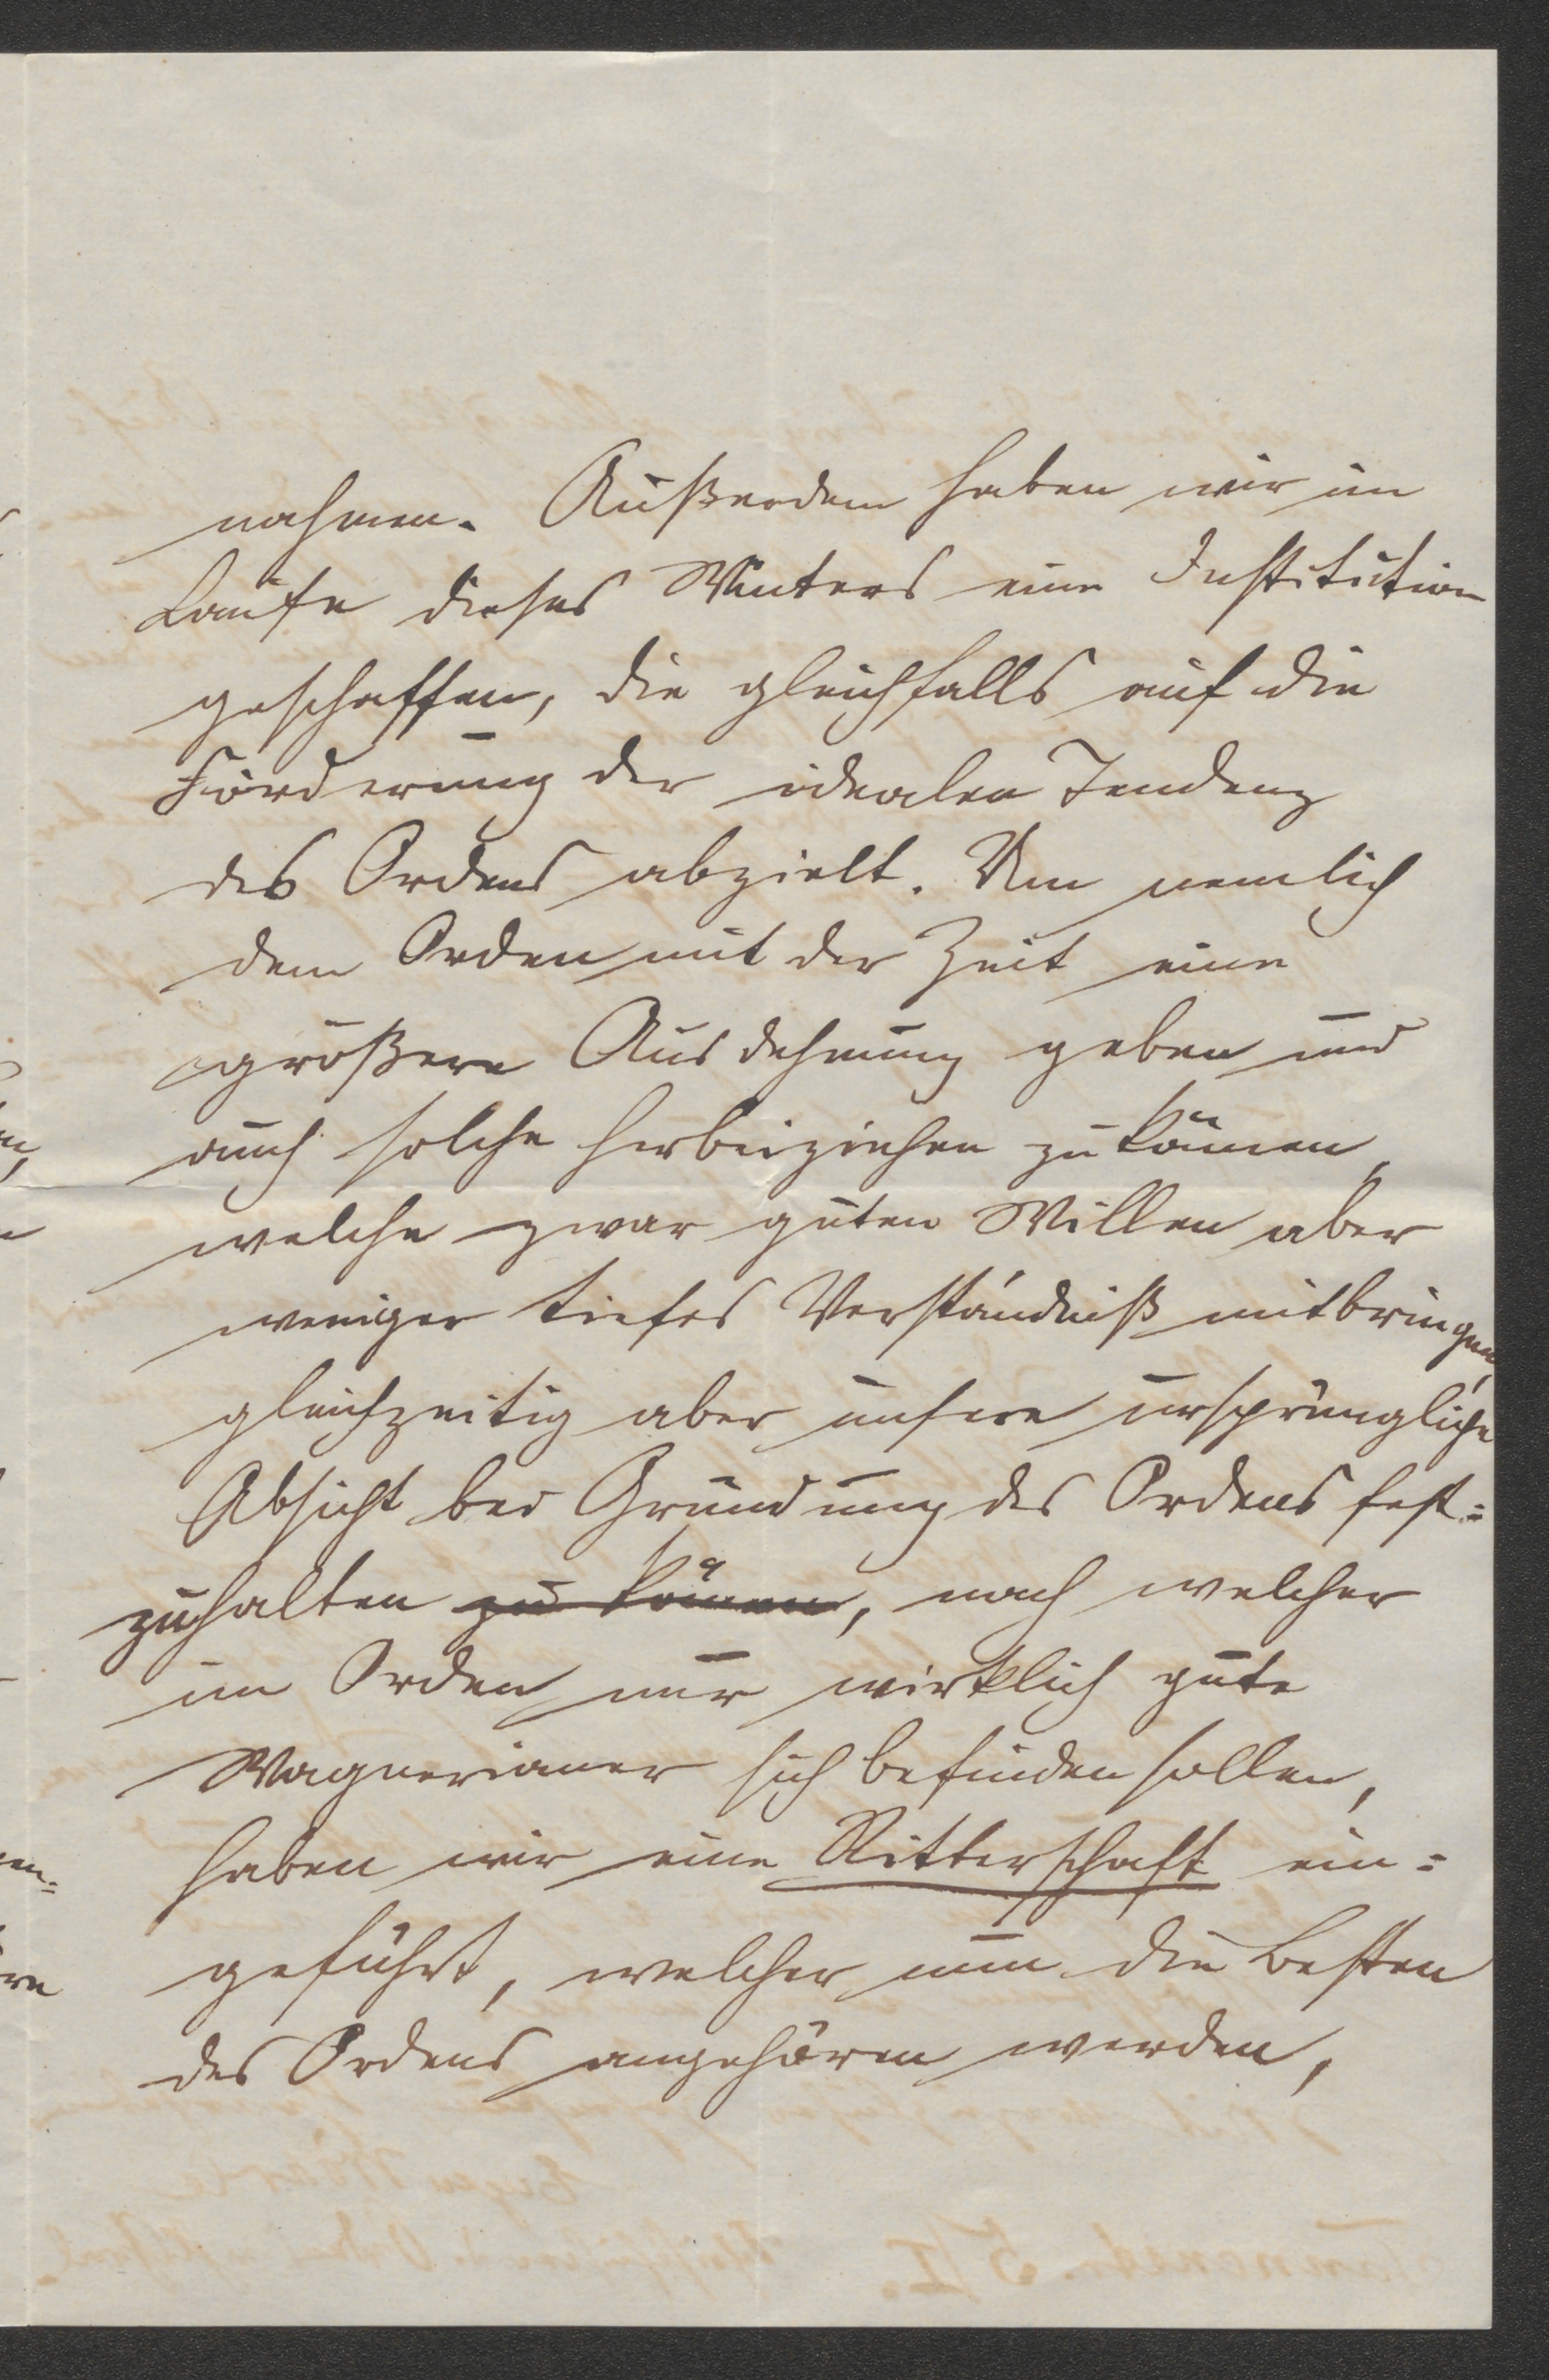 nahmen. Außerdem haben wir im
Laufe dieses Winters eine Institution
geschaffen, die gleichfalls auf die
Förderung der idealen Tendenz
des Ordens abzielt. Um nemlich
dem Orden mit der Zeit eine
größere Ausdehnung geben und
auch solche herbeiziehen zu können,
welche zwar guten Willen aber
weniger tiefes Verständniß mitbringen,
gleichzeitig aber unsere ursprüngliche
Absicht bei Gründung des Ordens fest=
zuhalten zu können, nach welcher
im Orden nur wirklich gute
Wagnerianer sich befinden sollen,
haben wir eine Ritterschaft ein=
geführt, welcher nun die Besten
des Ordens angehören werden,